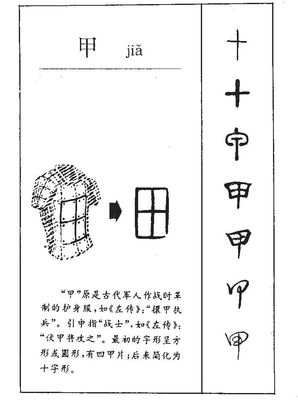 甲 jiǎ
“甲”原是古代军人作战时革
制的护身服，如《左传》：“擐甲执
兵”。引申指“战士”，如《左传》：
“伏甲将攻之”。最初的字形呈方
形或圆形，有四甲片；后来简化为
十字形。